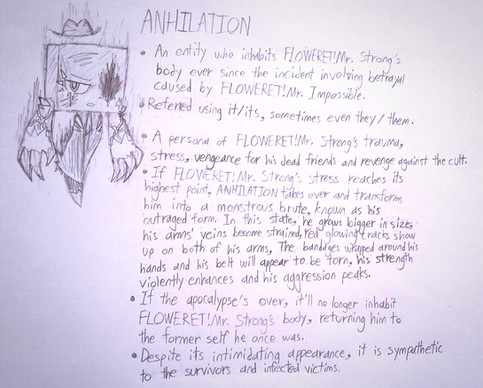 ANHILATION
• An entity who inhabits FLOWERET!Mr. Strong's
body ever since the incident involving betrayal
caused by FLOWERET!Mr. Impossible.
• Refered using it/its, sometimes even they/them.
• A persona of FLOWERET!Mr. Strong's trauma,
stress, vengeance for his dead friends and revenge against the cult.
• If FLOWERET!Mr. Strong's stress reaches its
highest point, ANHILATION takes over and transforms
him into a monstrous brute, known as his
outraged form. In this state, he grows bigger in size,
his arms' veins become strained, red glowing cracks show
up on both of his arms, The bandages wrapped around his
hands and his belt will appear to be torn, his strength
violently enhances and his aggression peaks.
• If the apocalypse's over, it'll no longer inhabit
FLOWERET!Mr. Strong's body, returning him to
the former self he once was.
• Despite its intimidating appearance, it is sympathetic
to the survivors and infected victims.